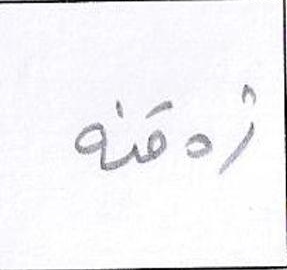 زه قنه